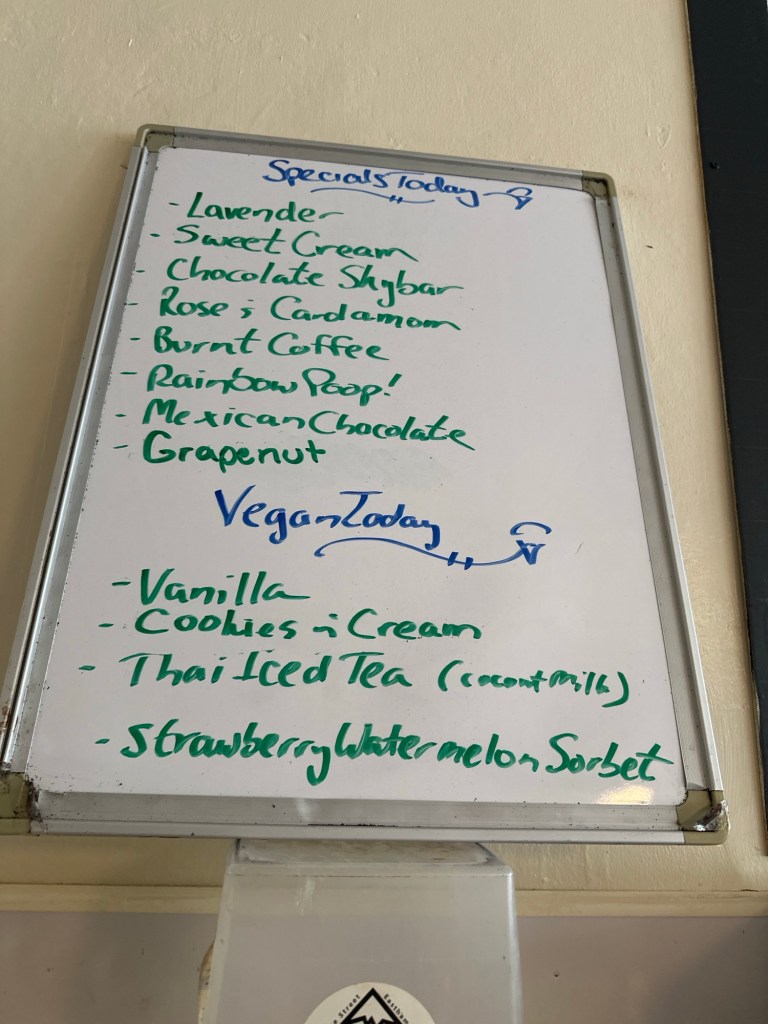 Specials Today
- Lavender
- Sweet Cream
- Chocolate Skybar
- Rose ; Cardamom
- Burnt Coffee
- Rainbow Poop!
- Mexican Chocolate
- Grapenut
Vegan Today
- Vanilla
- Cookies n Cream
- Thai Iced Tea (coconut milk)
- Strawberry Watermelon Sorbet
Street Eastham